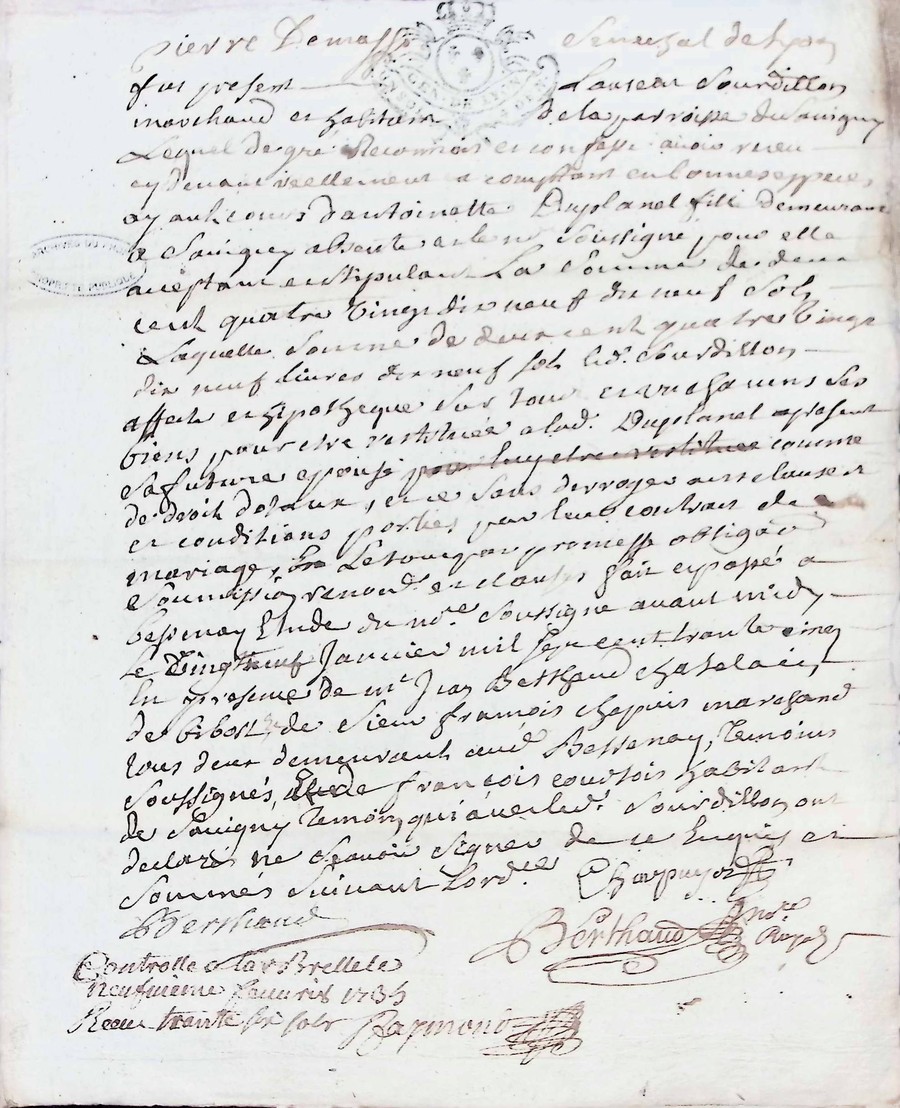 Pierre Demasso Senechal de Lyon
fut present Laurent Sourdillon
marchand et habitant de la parroisse de Savigny
Lequel de gré Reconnois et confesse avoir receu
cy devant reellement et comptant en bonnes especes
ayant cours d'antoinette Duplanel fille demeurant
a Savigny absente et le no.re Soussigné pour elle
acceptant et stipulant La Somme de deux
cent quatre vingt dix neuf dix neuf Sols
Laquelle Somme de deux cent quatre vingt
dix neuf livres dix neuf sols led. Sourdillon
affecte et hipotheque Sur tous et un chacuns ses
biens pour etre restituée a lad. Duplanel a present
sa future epouse pour luy etre restituée comme
de droit dotaux, et ce sans derroger aux clauses
et conditions portées par leur contrat de
mariage, Le tout par promesse obliga.on
Soumission renond. et clauses fait et passé a
bessenay Etude du no.re Soussigné avant midy
Le Vingt neuf Janvier mil sept cent trante cinq
En presence de m.r Jean Berthaud chatelain
de bibost, de Sieur francois chapuis marchand
tous deux demeurant aud. Bessenay, Temoins
Soussignés, et de françois courtois habitant
de Savigny Temoin qui avec led. Sourdillon ont
declaré ne Sçavoir Signer de ce Enquis et
Sommés Suivant Lord.ce Chapuy
Berthaud Berthaud no.re Royal
Controllé a Larbrelle le
neufvieme fevrier 1735
Receu trante six sols Raymond